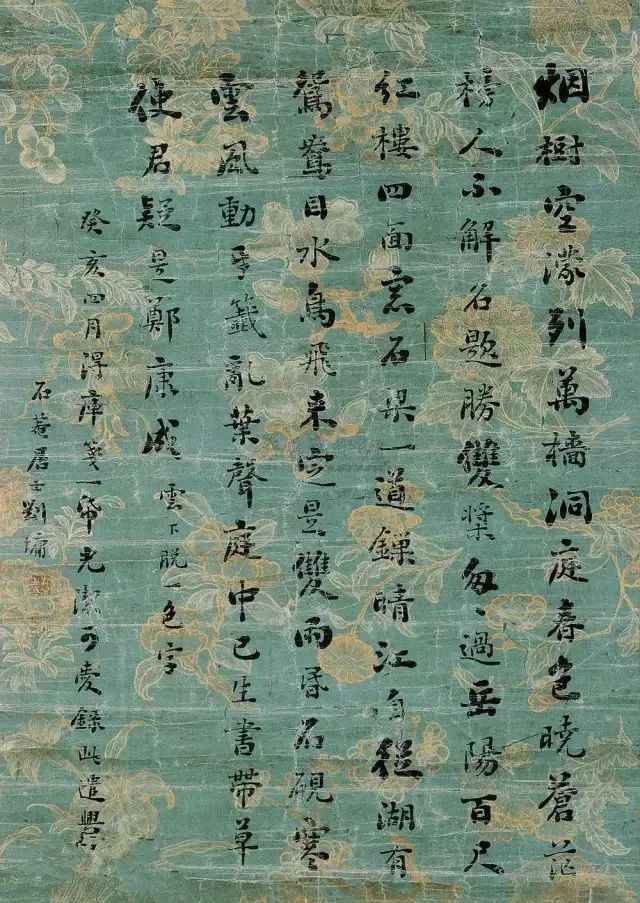 烟樹空濛列萬檣洞庭春色曉蒼茫
榜人不解名題勝雙槳匆〻過岳陽百尺
紅樓四面窓石梁一道鏁晴江自從湖有
鴛鴦目水鳥飛來定是雙雨昏石硯寒
雲風動牙籤亂葉聲庭中已生書帶草
使君疑是鄭康成 雲下脱一色字
癸亥四月得庫箋一帋光潔可愛錄此遣興
石菴居士劉墉